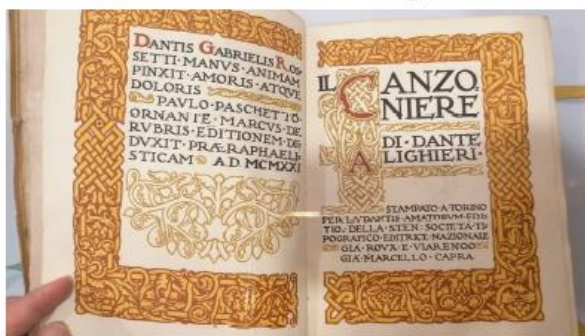 DANTIS GABRIELIS ROS
SETTI·MANVS·ANIMAM
PINXIT·AMORIS·ATQVE
DOLORIS
PAVLO·PASCHETTO·
ORNANTE·MARCVS·DE
RVBRIS·EDITIONEM·DE
DVXIT·PRÆRAPHAELI
STICAM A.D. MCMXXI
IL CANZO
NIERE
DI·DANTE
ALIGHIERI·
STAMPATO·A·TORINO
PER·LVDANTIS·AMATORVM·EDI
TIO·DELLA·STEN·SOCIETA·TI
POGRAFICO·EDITRICE·NAZIONALE
GIA·ROVX·E·VIARENGO
GIA·MARCELLO·CAPRA